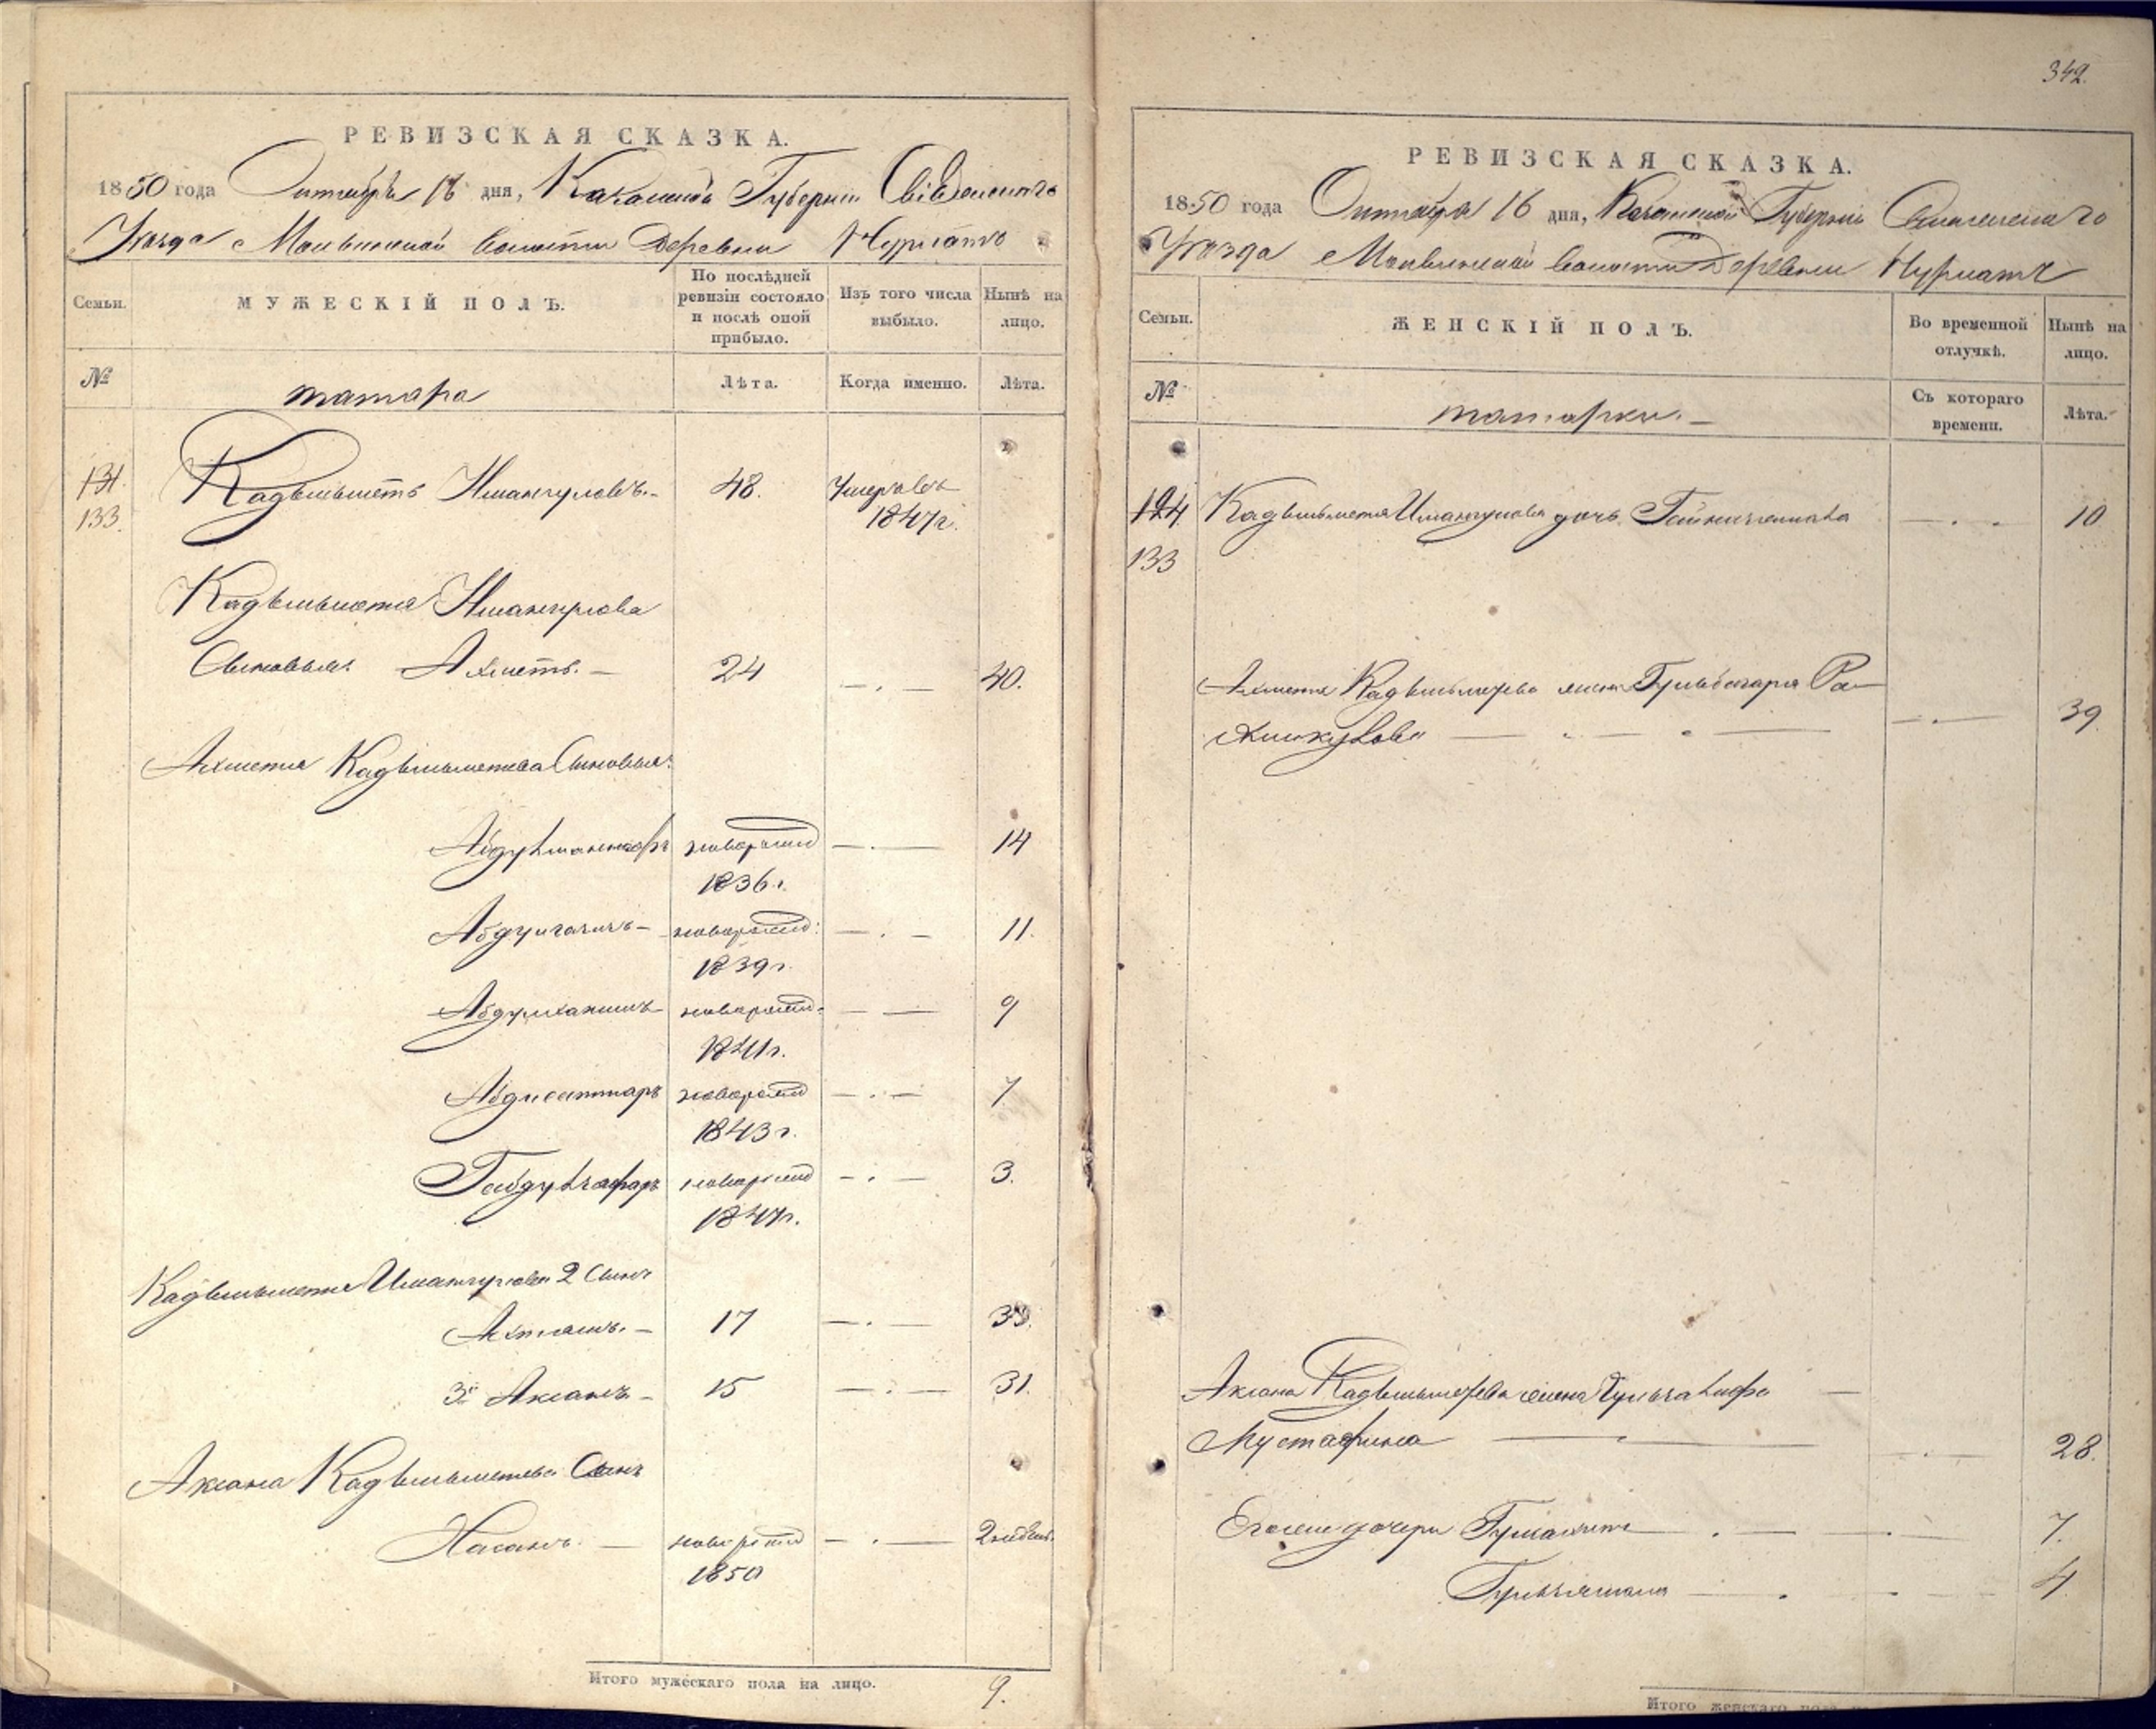 РЕВИЗСКАЯ СКАЗКА.
1850 года Октября 16 дня, Казанской Губернiи
Уезда Волости Деревни Нурлатъ
Семьи.
МУЖЕСКIЙ ПОЛЪ.
По послѣдней ревизiи состояло и послѣ оной прибыло.
Изъ того числа выбыло.
Нынѣ на лицо.
№
татара
Лѣта.
Когда именно.
Лѣта.
131
133.
Кадыльметъ Имангуловъ.
48.
Умеръ въ
1847г.
Кадыльметя Имангулова
Сыновья: Ахметъ.
24
40.
Ахметя Кадыльметева Сыновья:
новорожд
14
1836г.
новорожд:
11.
1839г.
новорожд:
9
1841г.
Абдусаттаръ новорожд
7
1843г.
Габдулгафаръ новорожд
3.
1847г.
Кадыльметя Имангулова 2 Сынъ
17
33.
3й Аксанъ
15
31.
Аксана Кадыльметева Сынъ
Хасанъ.
новорожд
2 недѣли.
1850
Итого мужескаго пола на лицо.
9.
342.
РЕВИЗСКАЯ СКАЗКА.
1850 года Октября 16 дня, Казанской Губернiи
Уезда Волости Деревни Нурлатъ
Семьи.
ЖЕНСКIЙ ПОЛЪ.
Во временной отлучкѣ.
Нынѣ на лицо.
№
татарки.
Съ котораго времени.
Лѣта.
124
Кадыльметя Имангулова дочь
10
133
Ахметя Кадыльметева жена Гульбагара Ра-
химкулова
39.
Аксана Кадыльметева жена
Мустафина
28.
Его же дочери
7.
4
Итого женскаго пола